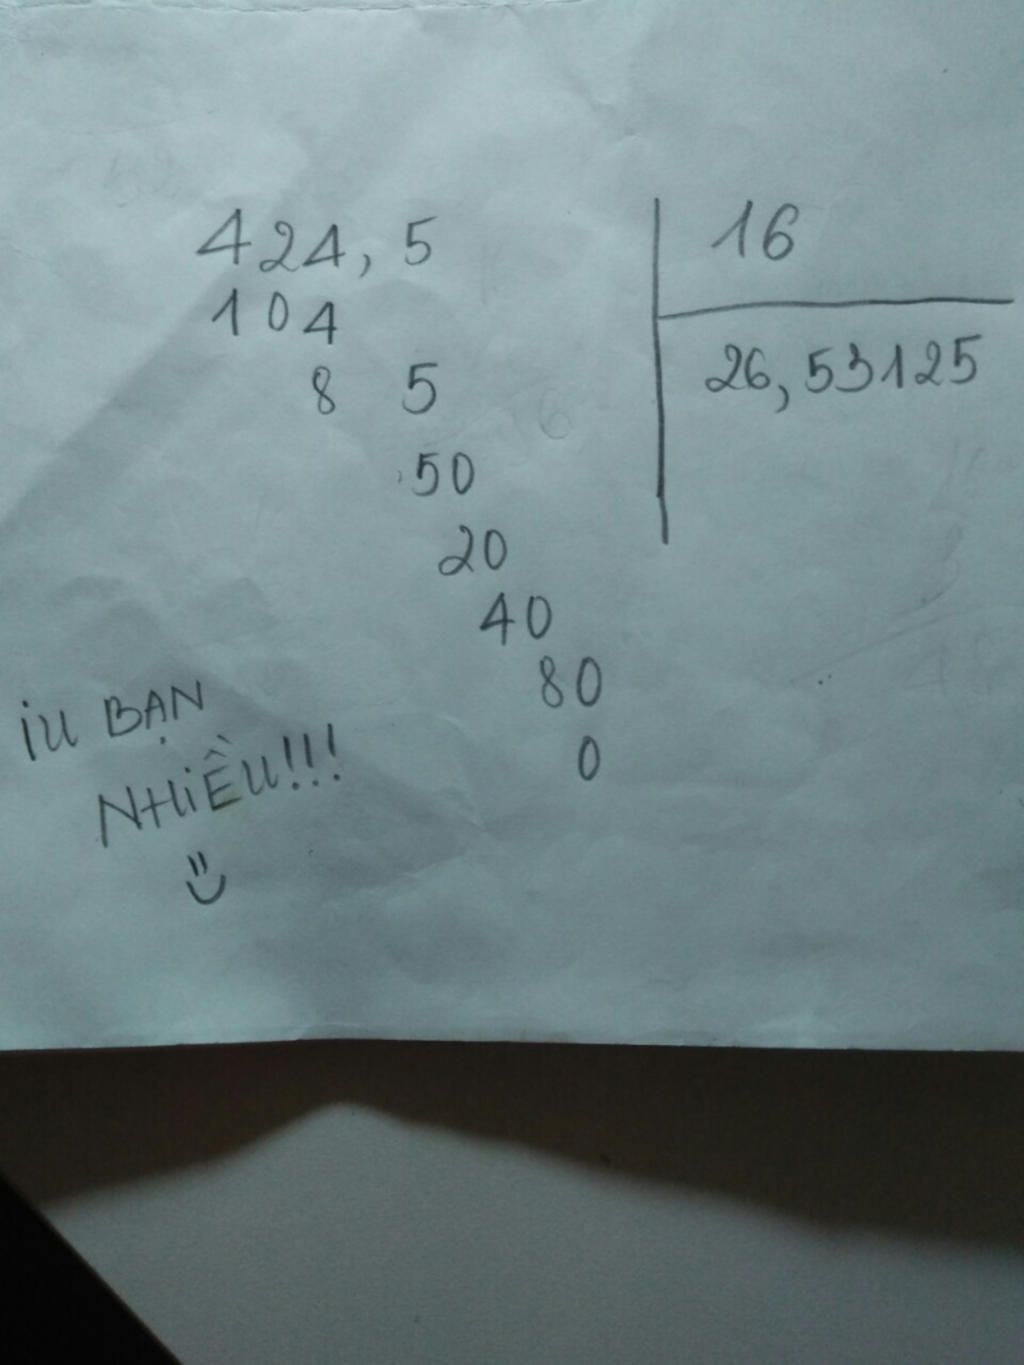 424,5 16
104 26,53125
8 5
50
20
40
80
0
iu BẠN
NHiỀU!!!